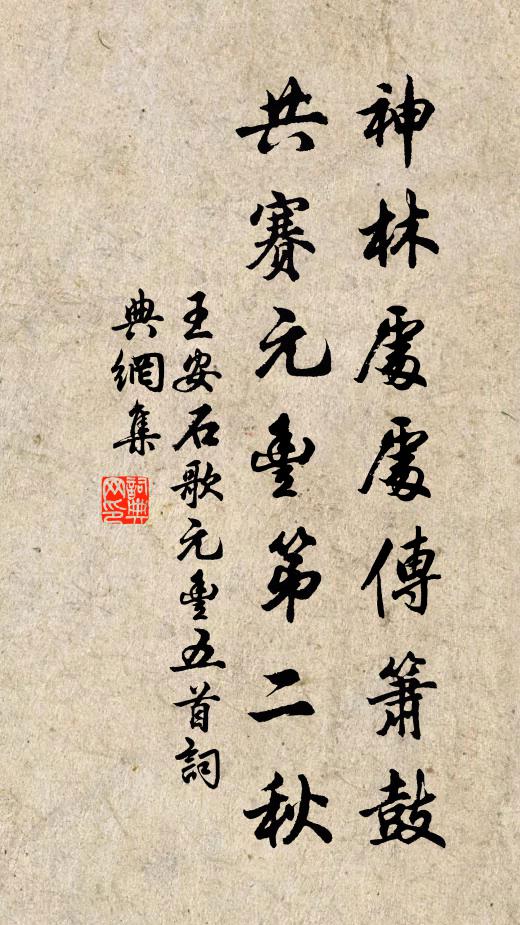 神林處處傳簫鼓
共賽元豐第二秋
王安石歌元豐五首詞
典網集
詞典
网印